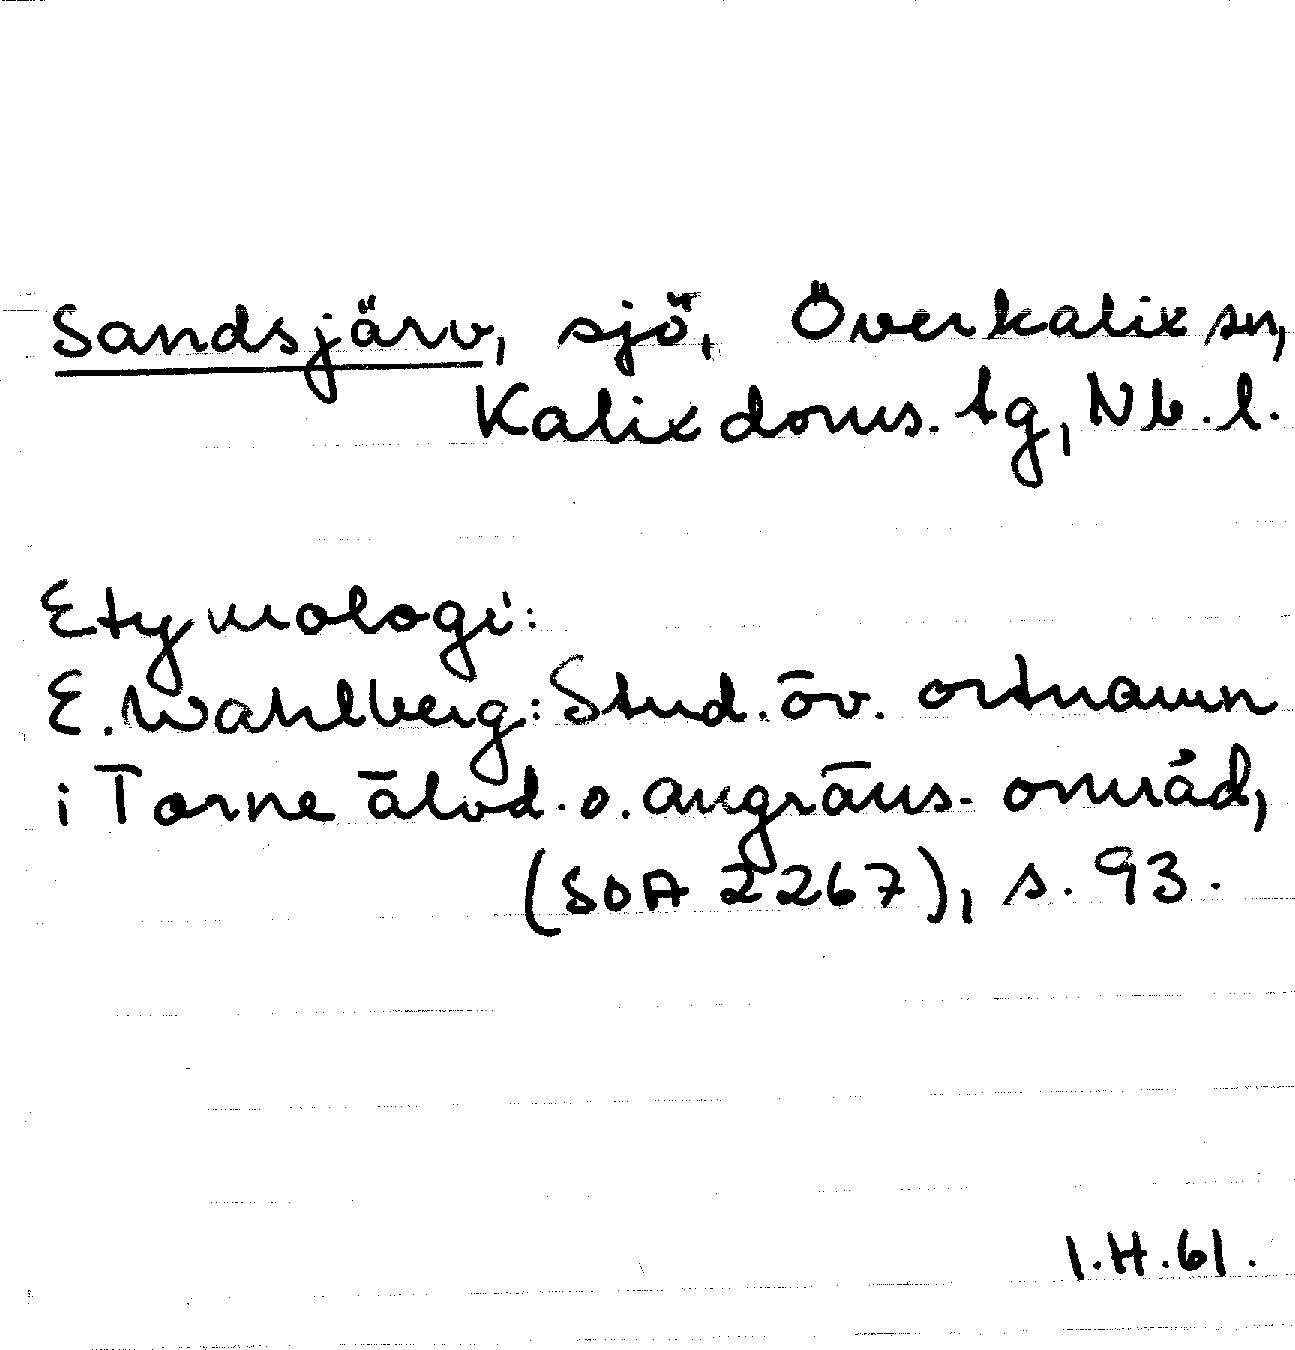 Sandsjärv, sjö, Överkalix sn,
Kalix doms. tg, Nb. l.
Etymologi:
E. Wahlberg: Stud. öv. ortnamn
i Torne älvd. o. angräns. områd,
(SOA 2267), s. 93.
I.H. 61.